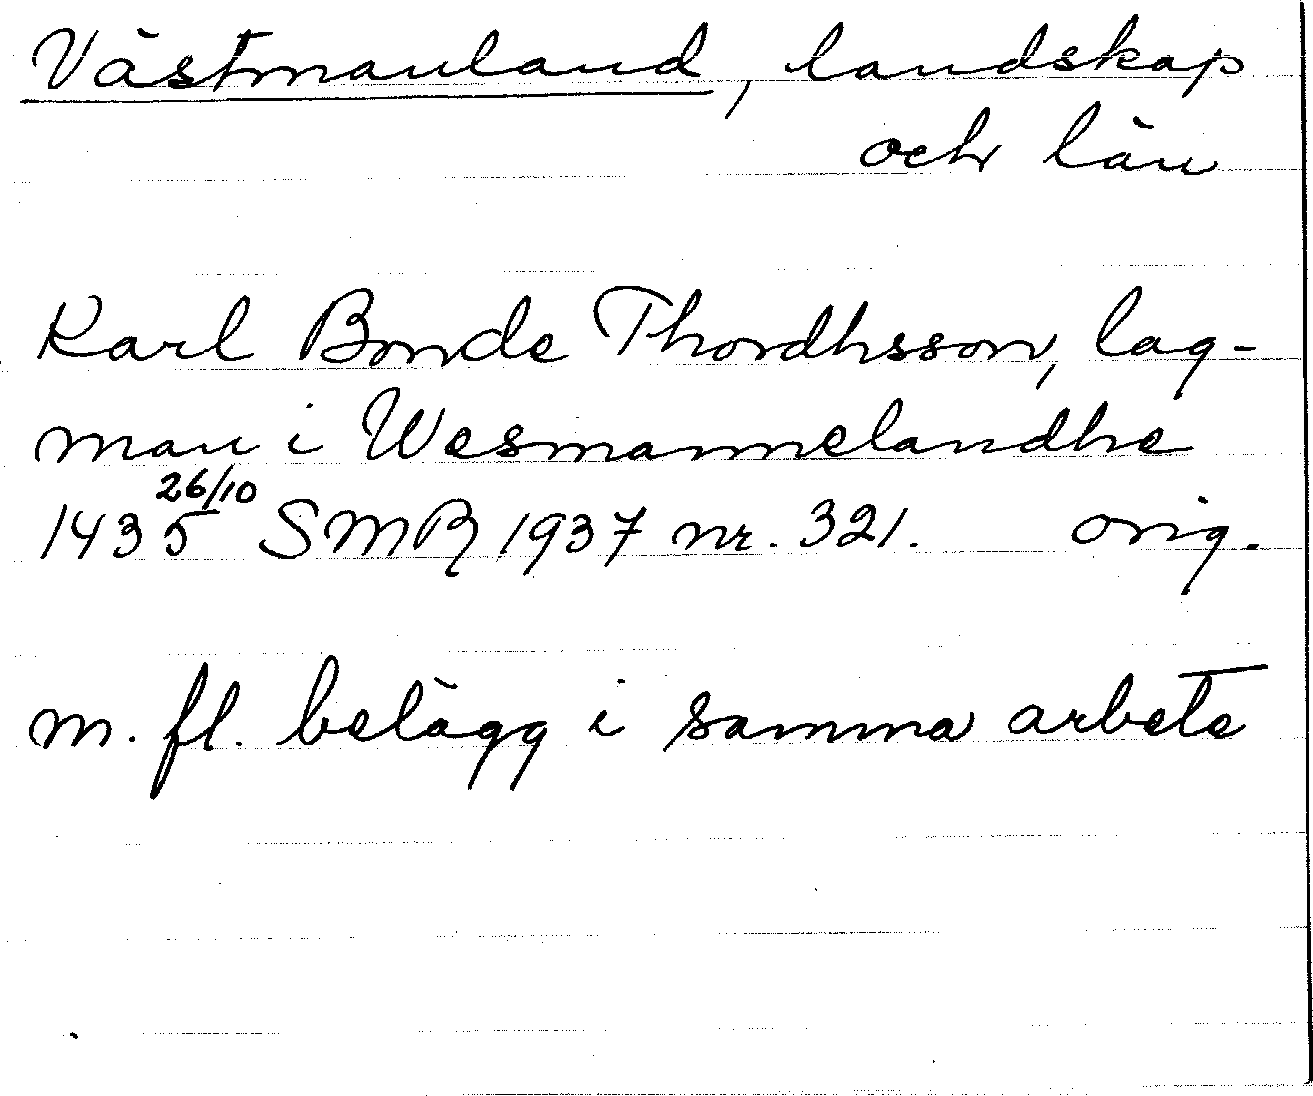 Västmanland, landskap
och län
Karl Bonde Thordhsson, lag-
man i Wesmannelandhe
26/10
1435 SMR 1937 nr. 321. orig.
m. fl. belägg i samma arbete